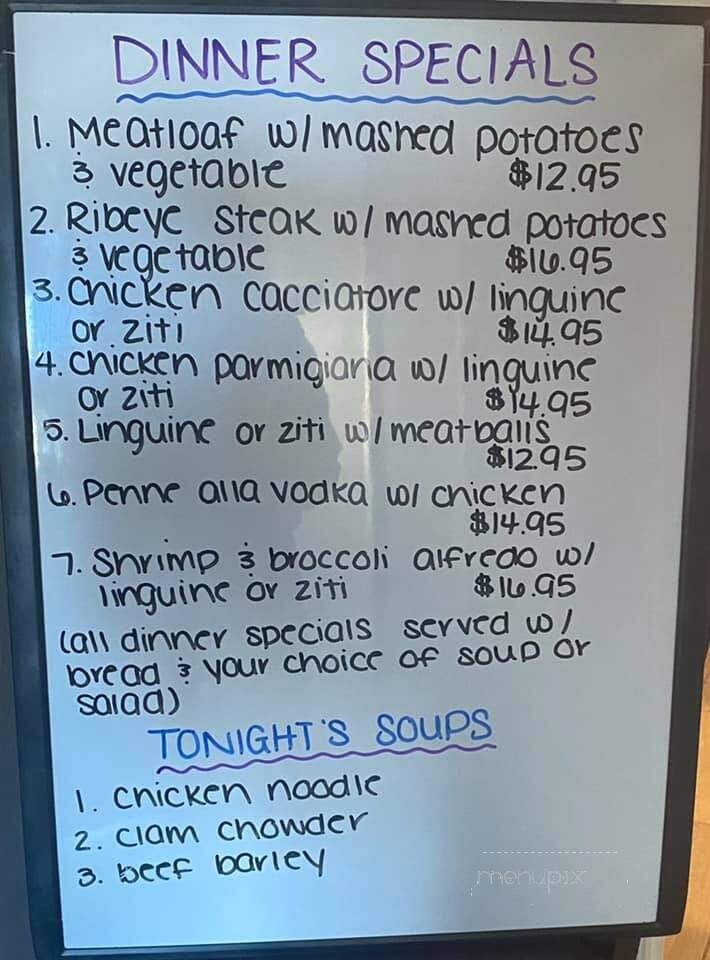 DINNER SPECIALS
1. Meatloaf w/ mashed potatoes
& vegetable $12.95
2. Ribeye steak w/ mashed potatoes
& vegetable $16.95
3. Chicken cacciatore w/ linguine
or ziti $14.95
4. Chicken parmigiana w/ linguine
or ziti $14.95
5. Linguine or ziti w/ meatballs
$12.95
6. Penne alla vodka w/ chicken
$14.95
7. Shrimp & broccoli alfredo w/
linguine or ziti $16.95
(all dinner specials served w/
bread & your choice of soup or
salad)
TONIGHT'S SOUPS
1. Chicken noodle
2. Clam chowder
3. beef barley
menupix